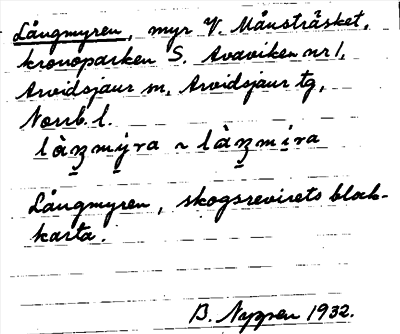 Långmyren, myr V. Månsträsket,
kronoparken S. Avaviken nr 1,
Arvidsjaur sn, Arvidsjaur tg,
Norrb. l.
làŋmy̌ra ~ làŋmira
Långmyren, skogsrevirets block-
karta.
B. Nyppen 1932.